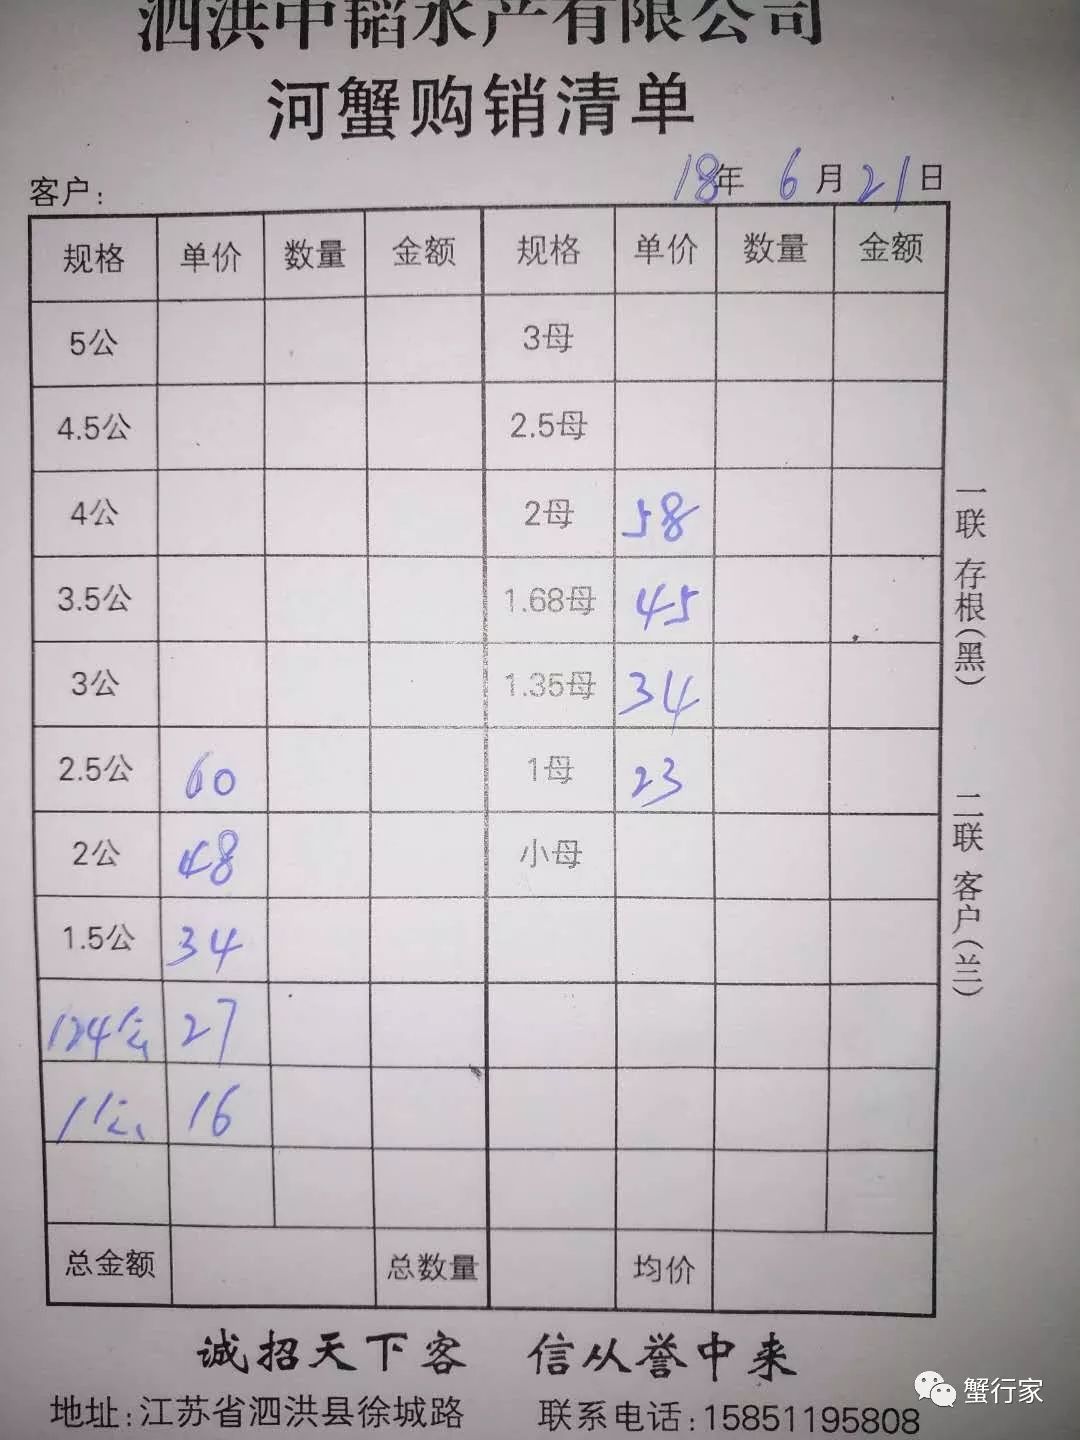 泗洪中韬水产有限公司
河蟹购销清单
客户: 18年 6月21日
规格 单价 数量 金额 规格 单价 数量 金额
5公 3母
4.5公 2.5母
4公 2母 58
3.5公 1.68母 45
3公 1.35母 34
2.5公 60 1母 23
2公 48 小母
1.5公 34
124公 27
1公 16
总金额 总数量 均价
一联 存根(黑)
二联 客户(兰)
诚招天下客 信从誉中来
地址:江苏省泗洪县徐城路 联系电话:15851195808
蟹行家